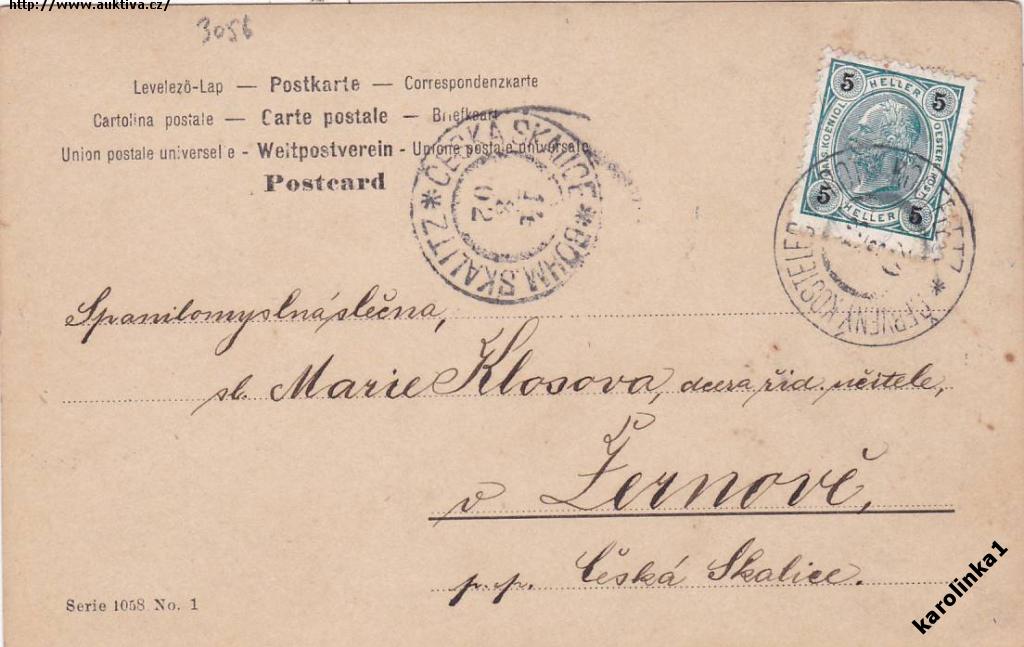 http://www.auktiva.cz/
3056
Levelező-Lap — Postkarte — Correspondenzkarte
Cartolina postale — Carte postale — Briefkaart
Union postale universelle - Weltpostverein - Unione postale universale
Postcard
5 HELLER 5
5 HELLER 5
* ČESKÁ SKALICE * BÖHM. SKALITZ
02
* ČERVENÝ KOSTELEC
Spanilomyslná slečna,
sl. Marie Klosova, dcera říd. učitele,
v Žernově,
p.p. Česká Skalice.
Serie 1058 No. 1
karolinka1